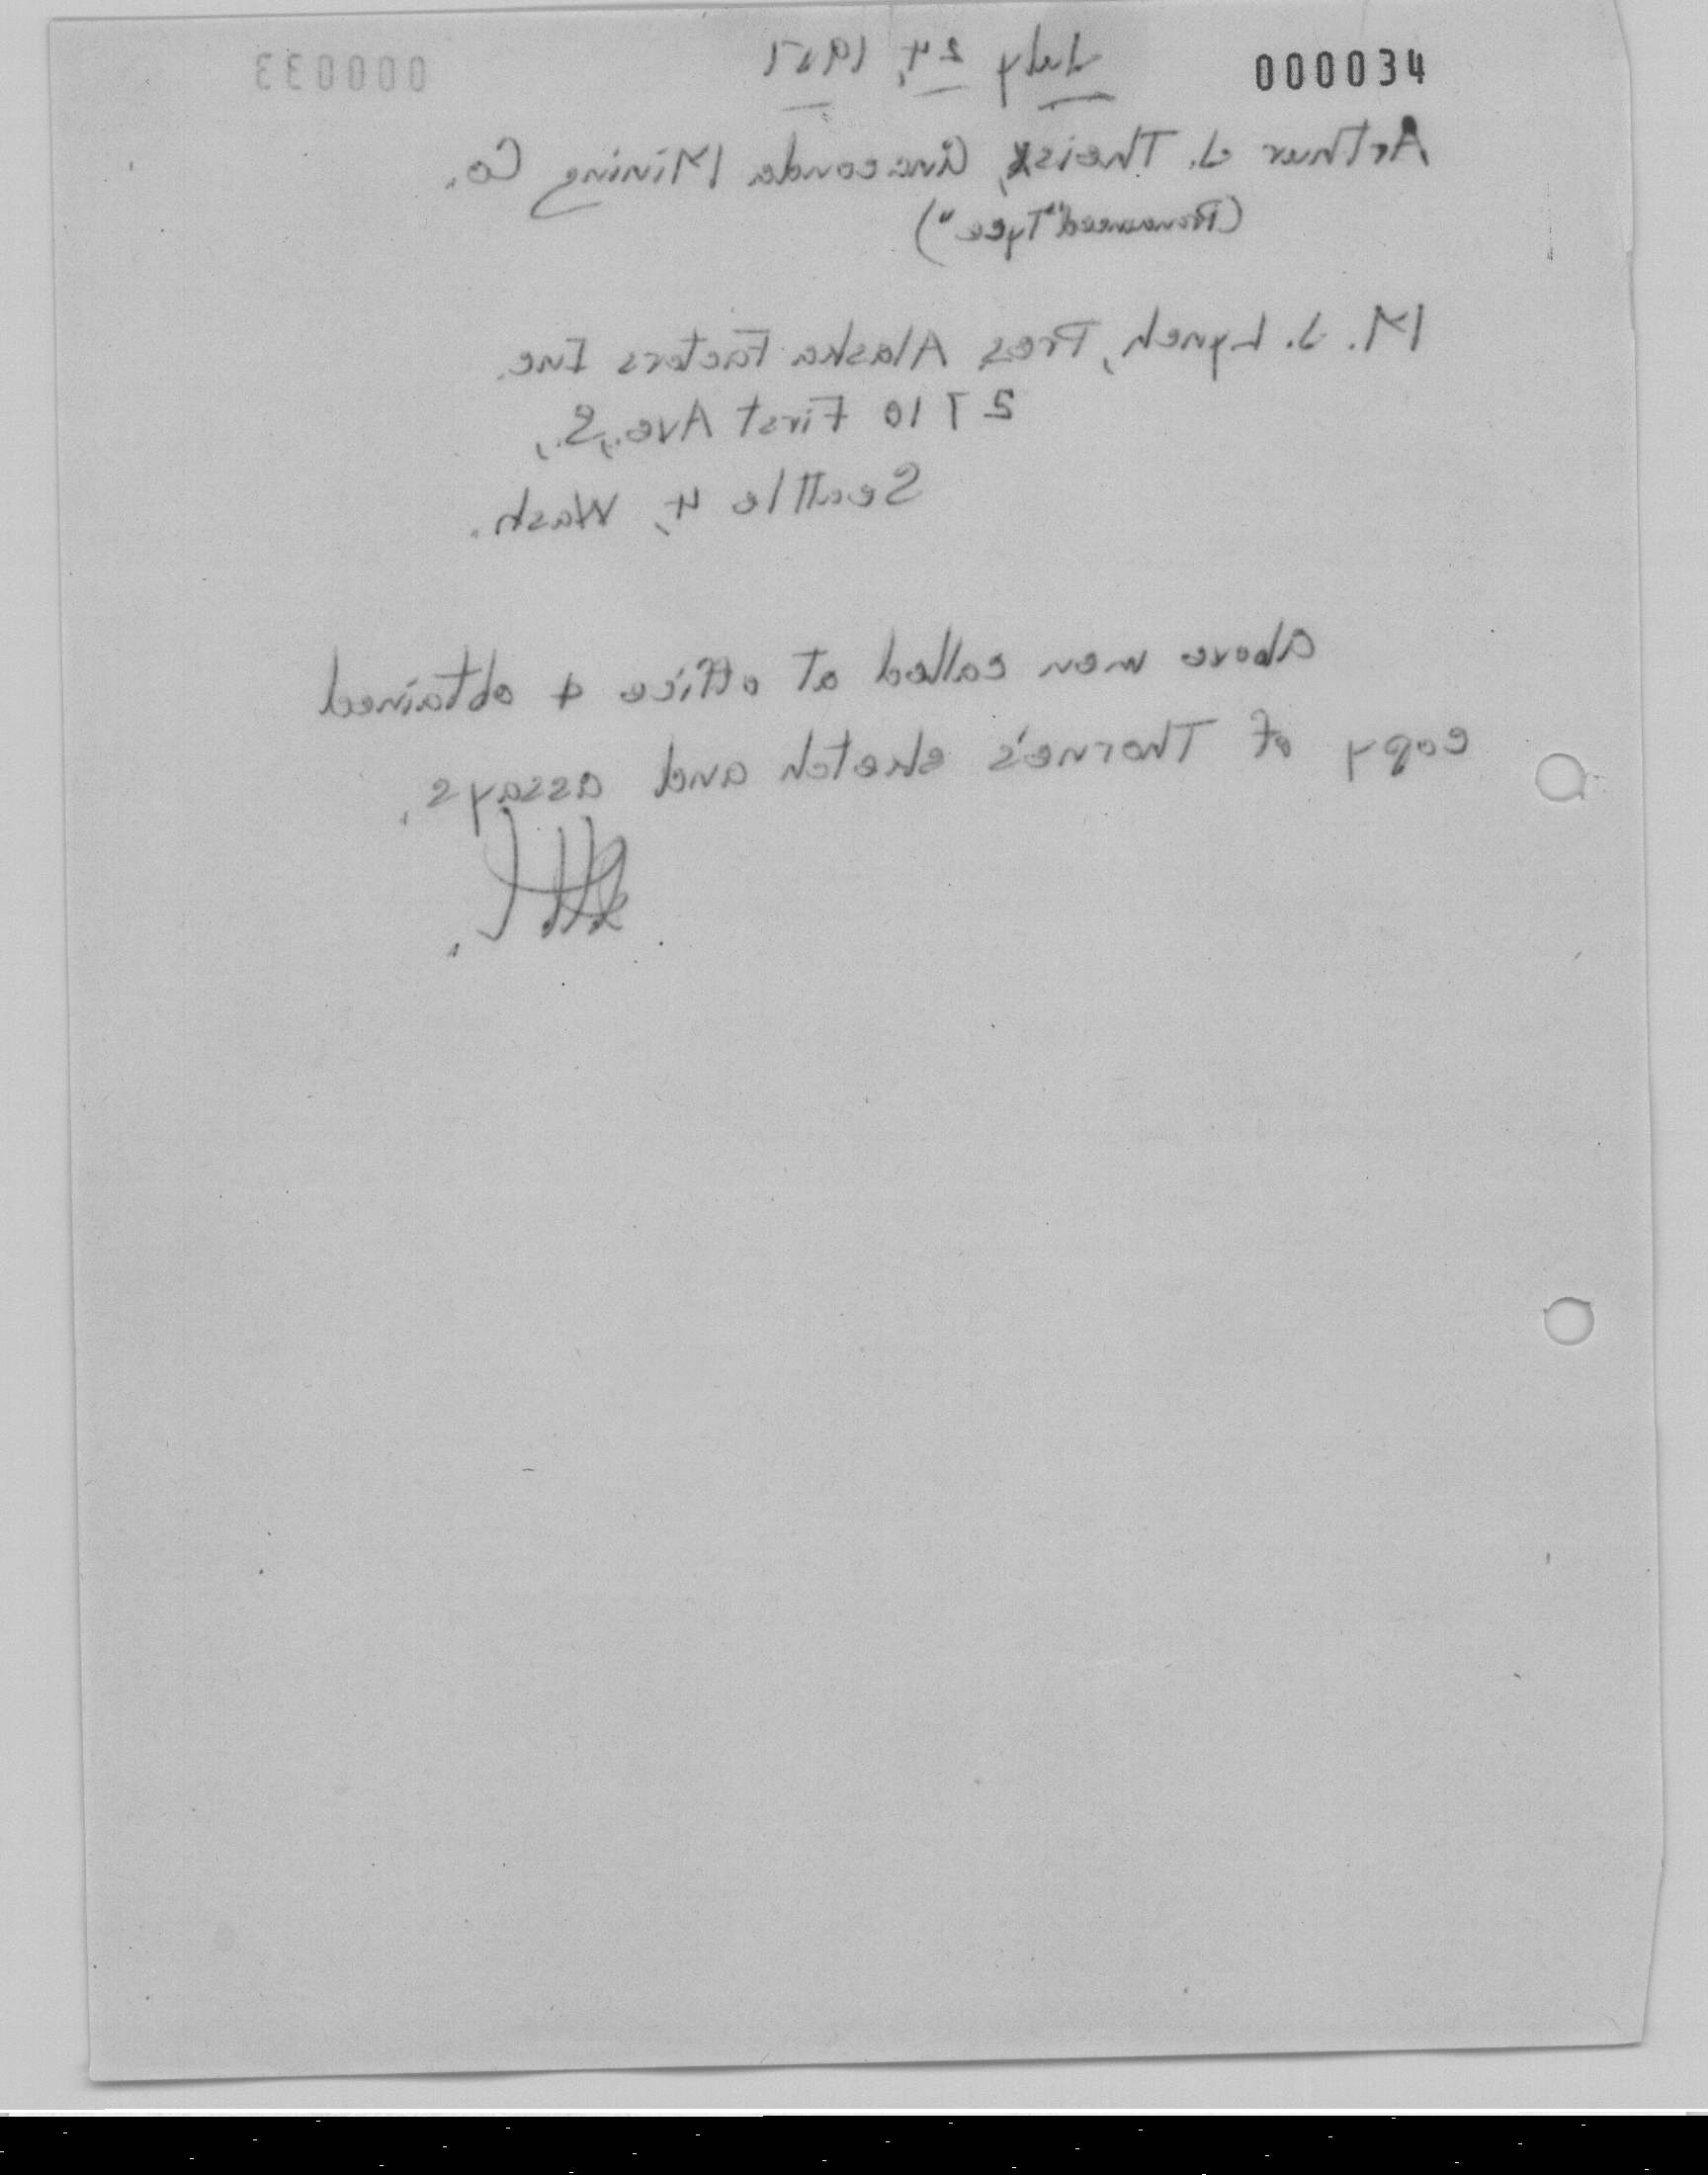 000034
000033
July 24, 1951
Arthur J. Theis, Anaconda Mining Co.
(Pronounced "Tyce")
M. J. Lynch, Pres Alaska Factors Inc.
2710 First Ave., S.,
Seattle 4, Wash.
Above men called at office & obtained
copy of Thorne's sketch and assays.